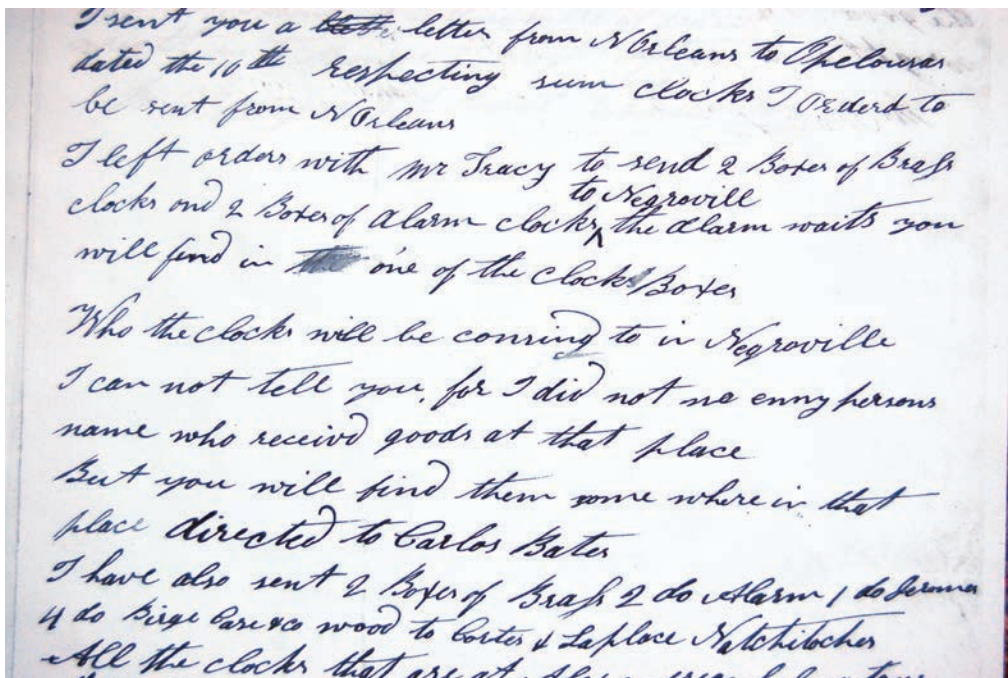 I sent you a letter from N Orleans to Opelousas
dated the 10th respecting sum clocks I orderd to
be sent from N Orleans
I left orders with Mr Tracy to send 2 Boxes of Brass
to Negrovill
clocks and 2 Boxes of Alarm clocks, the alarm waits you
will find in the one of the clock Boxes
Who the clocks will be coming to in Negroville
I can not tell you, for I did not no enny persons
name who receivd goods at that place
But you will find them some where in that
place directed to Carlos Bates
I have also sent 2 Boxes of Brass 2 do Alarm 1 do Jeromes
4 do Birge Case & co wood to Cortes & Laplace Natchitoches
All the clocks that are at